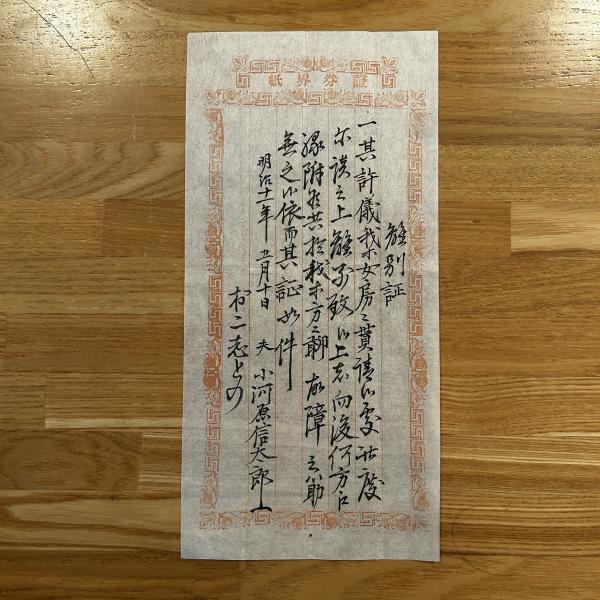 証券界紙
離別証
一其許儀我等女房ニ貰請候處此度
示談之上離別致候上者向後何方江
縁附候共於我等方ニ聊故障之筋
無之候依而其証如件
明治十一年 五月十日
夫 小河原信太郎
お二志との